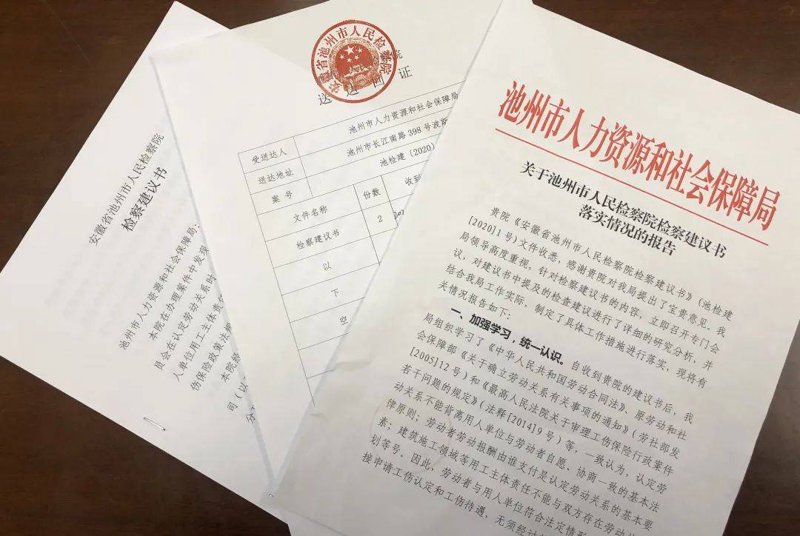 安徽省池州市人民检察院
检察建议书
池州市人力资源和社会保障局:
本院在办理案件中发现
员会在认定劳动关系时
人单位用工主体责
伤保险政策法规
本院
司(以
安徽省池州市人民检察院
送达回证
受送达人
池州市人力资源和社会保障局
送达地址
池州市长江南路398号
案号
池检建(2020)
文件名称
份数
收到
检察建议书
2
以
下
空
池州市人力资源和社会保障局
关于池州市人民检察院检察建议书
落实情况的报告
贵院《安徽省池州市人民检察院检察建议书》(池检建
[2020]1号)文件收悉,感谢贵院对我局提出了宝贵意见,我
局领导高度重视,针对检察建议书的内容,立即召开专门会
议,对建议书中提及的检查建议进行了详细的研究分析,并
结合我局工作实际,制定了具体工作措施进行落实,现将有
关情况报告如下:
一、加强学习,统一认识。自收到贵院的建议书后,我
局组织学习了《中华人民共和国劳动合同法》、原劳动和社
会保障部《关于确立劳动关系有关事项的通知》(劳社部发
[2005]12号)和《最高人民法院关于审理工伤保险行政案件
若干问题的规定》(法释[2014]9号)等,一致认为,认定劳
动关系不能背离用人单位与劳动者自愿、协商一致的基本法
律原则;劳动者劳动报酬由谁支付是认定劳动关系的基本要
素;建筑施工领域等用工主体责任不能与双方存在劳动
划等号。因此,劳动者与用人单位符合法定情形
接申请工伤认定和工伤待遇,无须经过